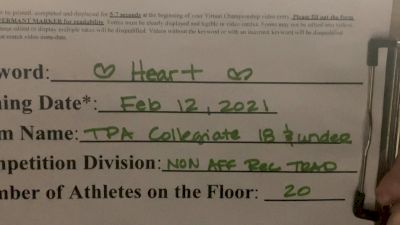 be printed, completed and displayed for 5-7 seconds at the beginning of your Virtual Championship video entry. Please fill out the form
PERMANT MARKER for readability. Forms must be clearly displayed and legible in video entries. Forms may not be edited into videos.
edited to display multiple takes will be disqualified. Videos without the keyword or with an incorrect keyword will be disqualified
match video date.
word: ♡ Heart ♡
ing Date*: Feb 12, 2021
m Name: TPA Collegiate 18 & under
petition Division: NON AFF REC TRAD
mber of Athletes on the Floor: 20